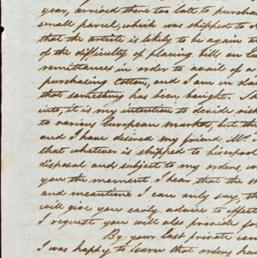 year, arrived there too late to purchas
small parcel, which was shipped to
that the article is likely to be again
of the difficulty of placing bill on
remittances in order to avail of a
purchasing Cotton, and I am in da
that something has been bought.
into, it is my intention to decide
to various European markets, but the
and I have desired my friend, Mr.
that whatever is shipped to Liverpool
disposal and subject to my orders
you the moment I hear that the
and meantime I can only say, th
will give you early advice to effect
I request you will also provide fo
By your last private
I was happy to learn that orders ha